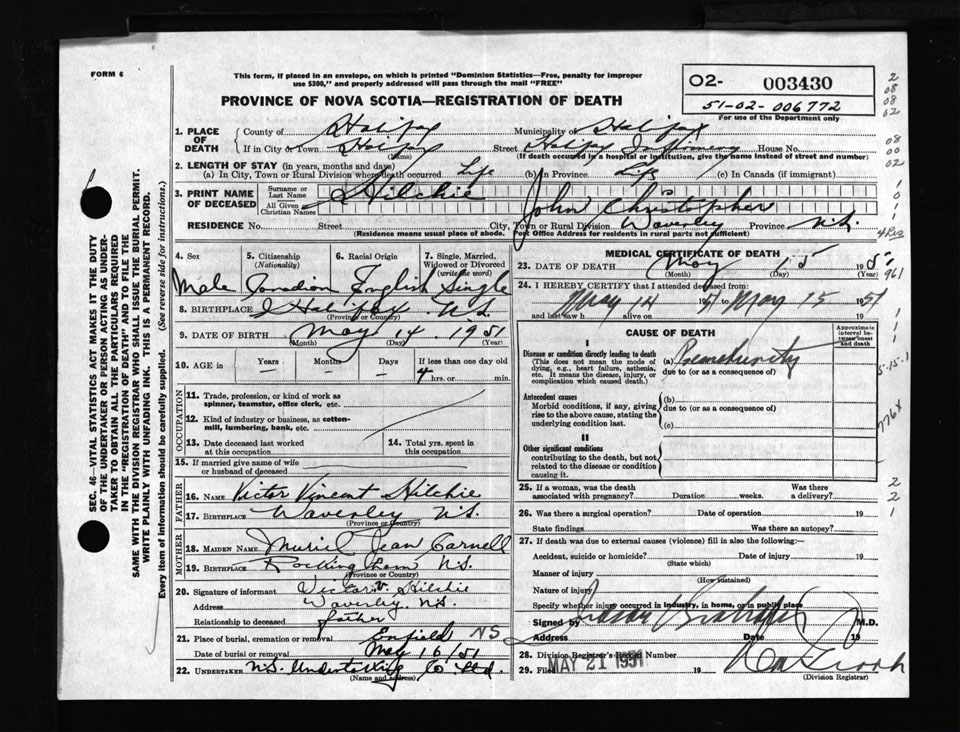 FORM 6
This form, if placed in an envelope, on which is printed "Dominion Statistics—Free, penalty for improper
use $300," and properly addressed will pass through the mail "FREE"
PROVINCE OF NOVA SCOTIA—REGISTRATION OF DEATH
O2- 003430
51-02-006772
For use of the Department only
1. PLACE OF DEATH
County of Halifax Municipality of Halifax
If in City or Town Halifax Street Halifax Infirmary House No.
(Name) (If death occurred in a hospital or institution, give the name instead of street and number)
2. LENGTH OF STAY (in years, months and days)
(a) In City, Town or Rural Division where death occurred Life (b) in Province Life (c) In Canada (if immigrant)
3. PRINT NAME OF DECEASED
Surname or Last Name Hilchie
All Given or Christian Names John Christopher
RESIDENCE No. Street City, Town or Rural Division Waverley Province N.S.
(Residence means usual place of abode. Post Office Address for residents in rural parts not sufficient)
4. Sex 5. Citizenship (Nationality) 6. Racial Origin 7. Single, Married, Widowed or Divorced (write the word)
Male Canadian English Single
8. BIRTHPLACE Halifax N.S.
(Province or Country)
9. DATE OF BIRTH May 14 1951
(Month) (Day) (Year)
10. AGE Years Months Days If less than one day old
— — — 4 hrs. or min.
OCCUPATION
11. Trade, profession, or kind of work as
spinner, teamster, office clerk, etc.
12. Kind of industry or business, as cotton-
mill, lumbering, bank, etc.
13. Date deceased last worked
at this occupation
14. Total yrs. spent in
this occupation
15. If married give name of wife
or husband of deceased
FATHER
16. NAME Victor Vincent Hilchie
17. BIRTHPLACE Waverley N.S.
(Province or Country)
MOTHER
18. MAIDEN NAME Muriel Jean Carnell
19. BIRTHPLACE Rockingham N.S.
(Province or Country)
20. Signature of informant Victor V. Hilchie
Address Waverley N.S.
Relationship to deceased father
21. Place of burial, cremation or removal Enfield NS
Date of burial or removal May 16/51
22. UNDERTAKER N.S. Undertaking Co. Ltd.
(Name and address)
MEDICAL CERTIFICATE OF DEATH
23. DATE OF DEATH May 15 195
(Month) (Day) (Year)
24. I HEREBY CERTIFY that I attended deceased from:
May 14 1951 to May 15 1951
and last saw h alive on 19
CAUSE OF DEATH
Approximate interval between onset and death
I
Disease or condition directly leading to death (a) Prematurity
(This does not mean the mode of
dying, e.g., heart failure, asthenia,
etc. It means the disease, injury, or
complication which caused death.)
due to (or as a consequence of)
Antecedent causes
Morbid conditions, if any, giving
rise to the above cause, stating the
underlying condition last.
(b)
due to (or as a consequence of)
(c)
II
Other significant conditions
contributing to the death, but not
related to the disease or condition
causing it.
25. If a woman, was the death
associated with pregnancy? Duration weeks. Was there
a delivery?
26. Was there a surgical operation? Date of operation 19
State findings Was there an autopsy?
27. If death was due to external causes (violence) fill in also the following:—
Accident, suicide or homicide? Date of injury 19
(State which)
Manner of injury
(How sustained)
Nature of injury
Specify whether injury occurred in industry, in home, or in public place
Signed by M.D.
Address Date 19
28. Division Registrar's Record Number
29. Filed MAY 21 1951 19
(Division Registrar)
SEC. 46—VITAL STATISTICS ACT MAKES IT THE DUTY
OF THE UNDERTAKER OR PERSON ACTING AS UNDER-
TAKER TO OBTAIN ALL THE PARTICULARS REQUIRED
IN THE "REGISTRATION OF DEATH" AND TO FILE THE
SAME WITH THE DIVISION REGISTRAR WHO SHALL ISSUE THE BURIAL PERMIT.
WRITE PLAINLY WITH UNFADING INK. THIS IS A PERMANENT RECORD.
Every item of information should be carefully supplied. (See reverse side for instructions.)
2
08
08
02
08
00
02
4 Res
961
5.15.1
776X
2
2
1